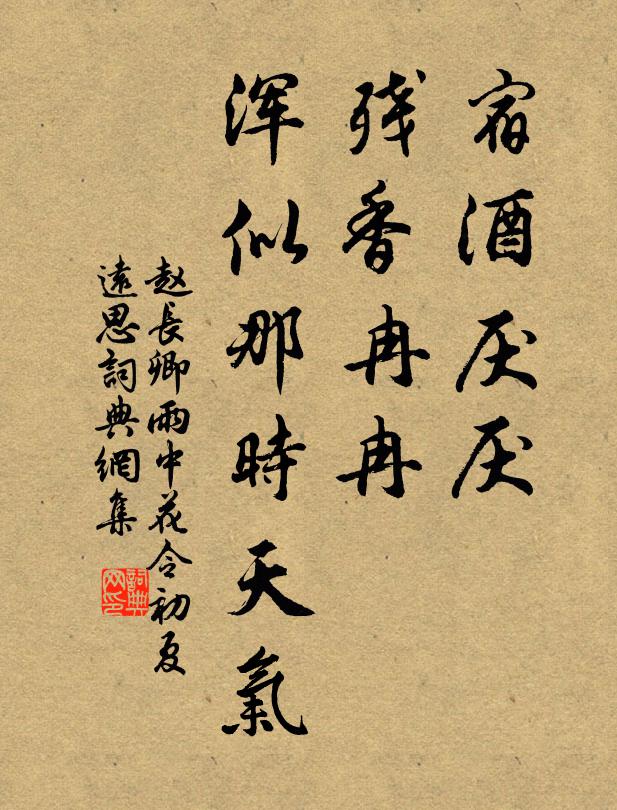 宿酒厌厌
残香冉冉
浑似那時天氣
赵長卿雨中花令初夏
遠思詞典網集
詞典
网印